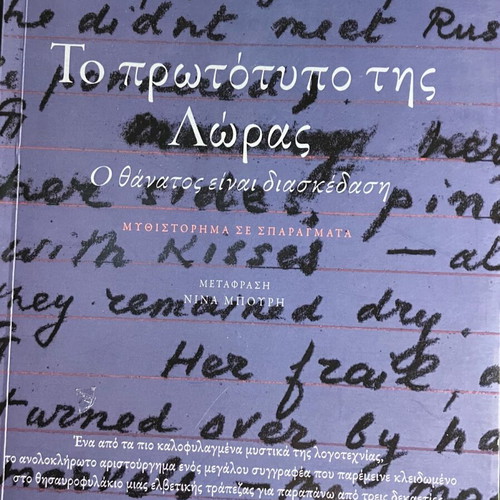 he didnt meet Rus
Το πρωτότυπο της
Λώρας
her
Ο θάνατος είναι διασκέδαση
her sides, pin
ΜΥΘΙΣΤΟΡΗΜΑ ΣΕ ΣΠΑΡΑΓΜΑΤΑ
with kisses — al
ΜΕΤΑΦΡΑΣΗ
ΝΙΝΑ ΜΠΟΥΡΗ
they remained dry.
Her frail,
turned over by
Ένα από τα πιο καλοφυλαγμένα μυστικά της λογοτεχνίας,
το ανολοκλήρωτο αριστούργημα ενός μεγάλου συγγραφέα που παρέμεινε κλειδωμένο
στο θησαυροφυλάκιο μιας ελβετικής τράπεζας για παραπάνω από τρεις δεκαετίες